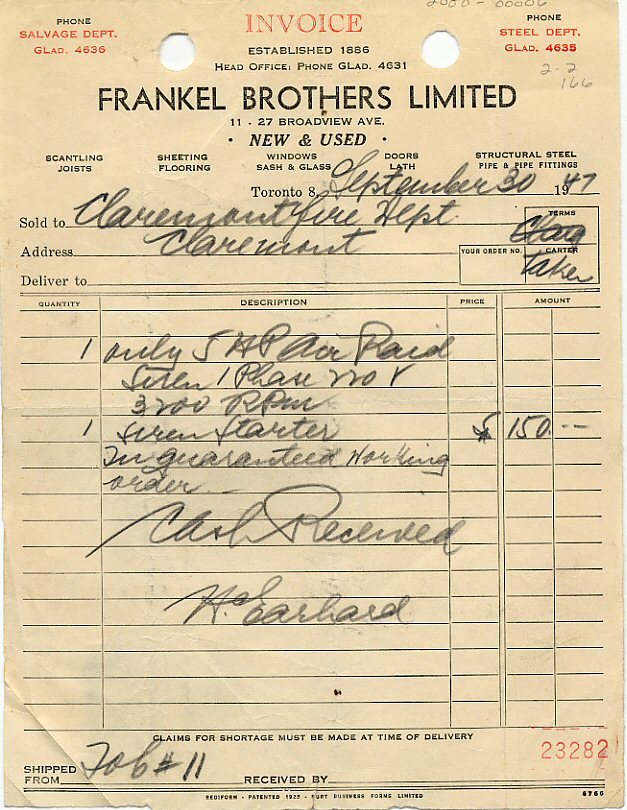 PHONE
SALVAGE DEPT.
GLAD. 4636
INVOICE
ESTABLISHED 1886
HEAD OFFICE: PHONE GLAD. 4631
PHONE
STEEL DEPT.
GLAD. 4635
2-2
166
FRANKEL BROTHERS LIMITED
11 - 27 BROADVIEW AVE.
• NEW & USED •
SCANTLING JOISTS
SHEETING FLOORING
WINDOWS SASH & GLASS
DOORS LATH
STRUCTURAL STEEL PIPE & PIPE FITTINGS
Toronto 8, September 30 1947
Sold to Claremont Fire Dept
Address Claremont
Deliver to
TERMS
YOUR ORDER NO.
CARTER
Taken
QUANTITY DESCRIPTION PRICE AMOUNT
1 only 5 HP Air Raid
Siren 1 Phase 220 V
3200 RPM
1 Siren Starter $ 150.--
In guaranteed working
order
Cash Received
CLAIMS FOR SHORTAGE MUST BE MADE AT TIME OF DELIVERY
23282
SHIPPED FROM Job # 11 RECEIVED BY
REDIFORM - PATENTED 1925 - BURT BUSINESS FORMS LIMITED
6766